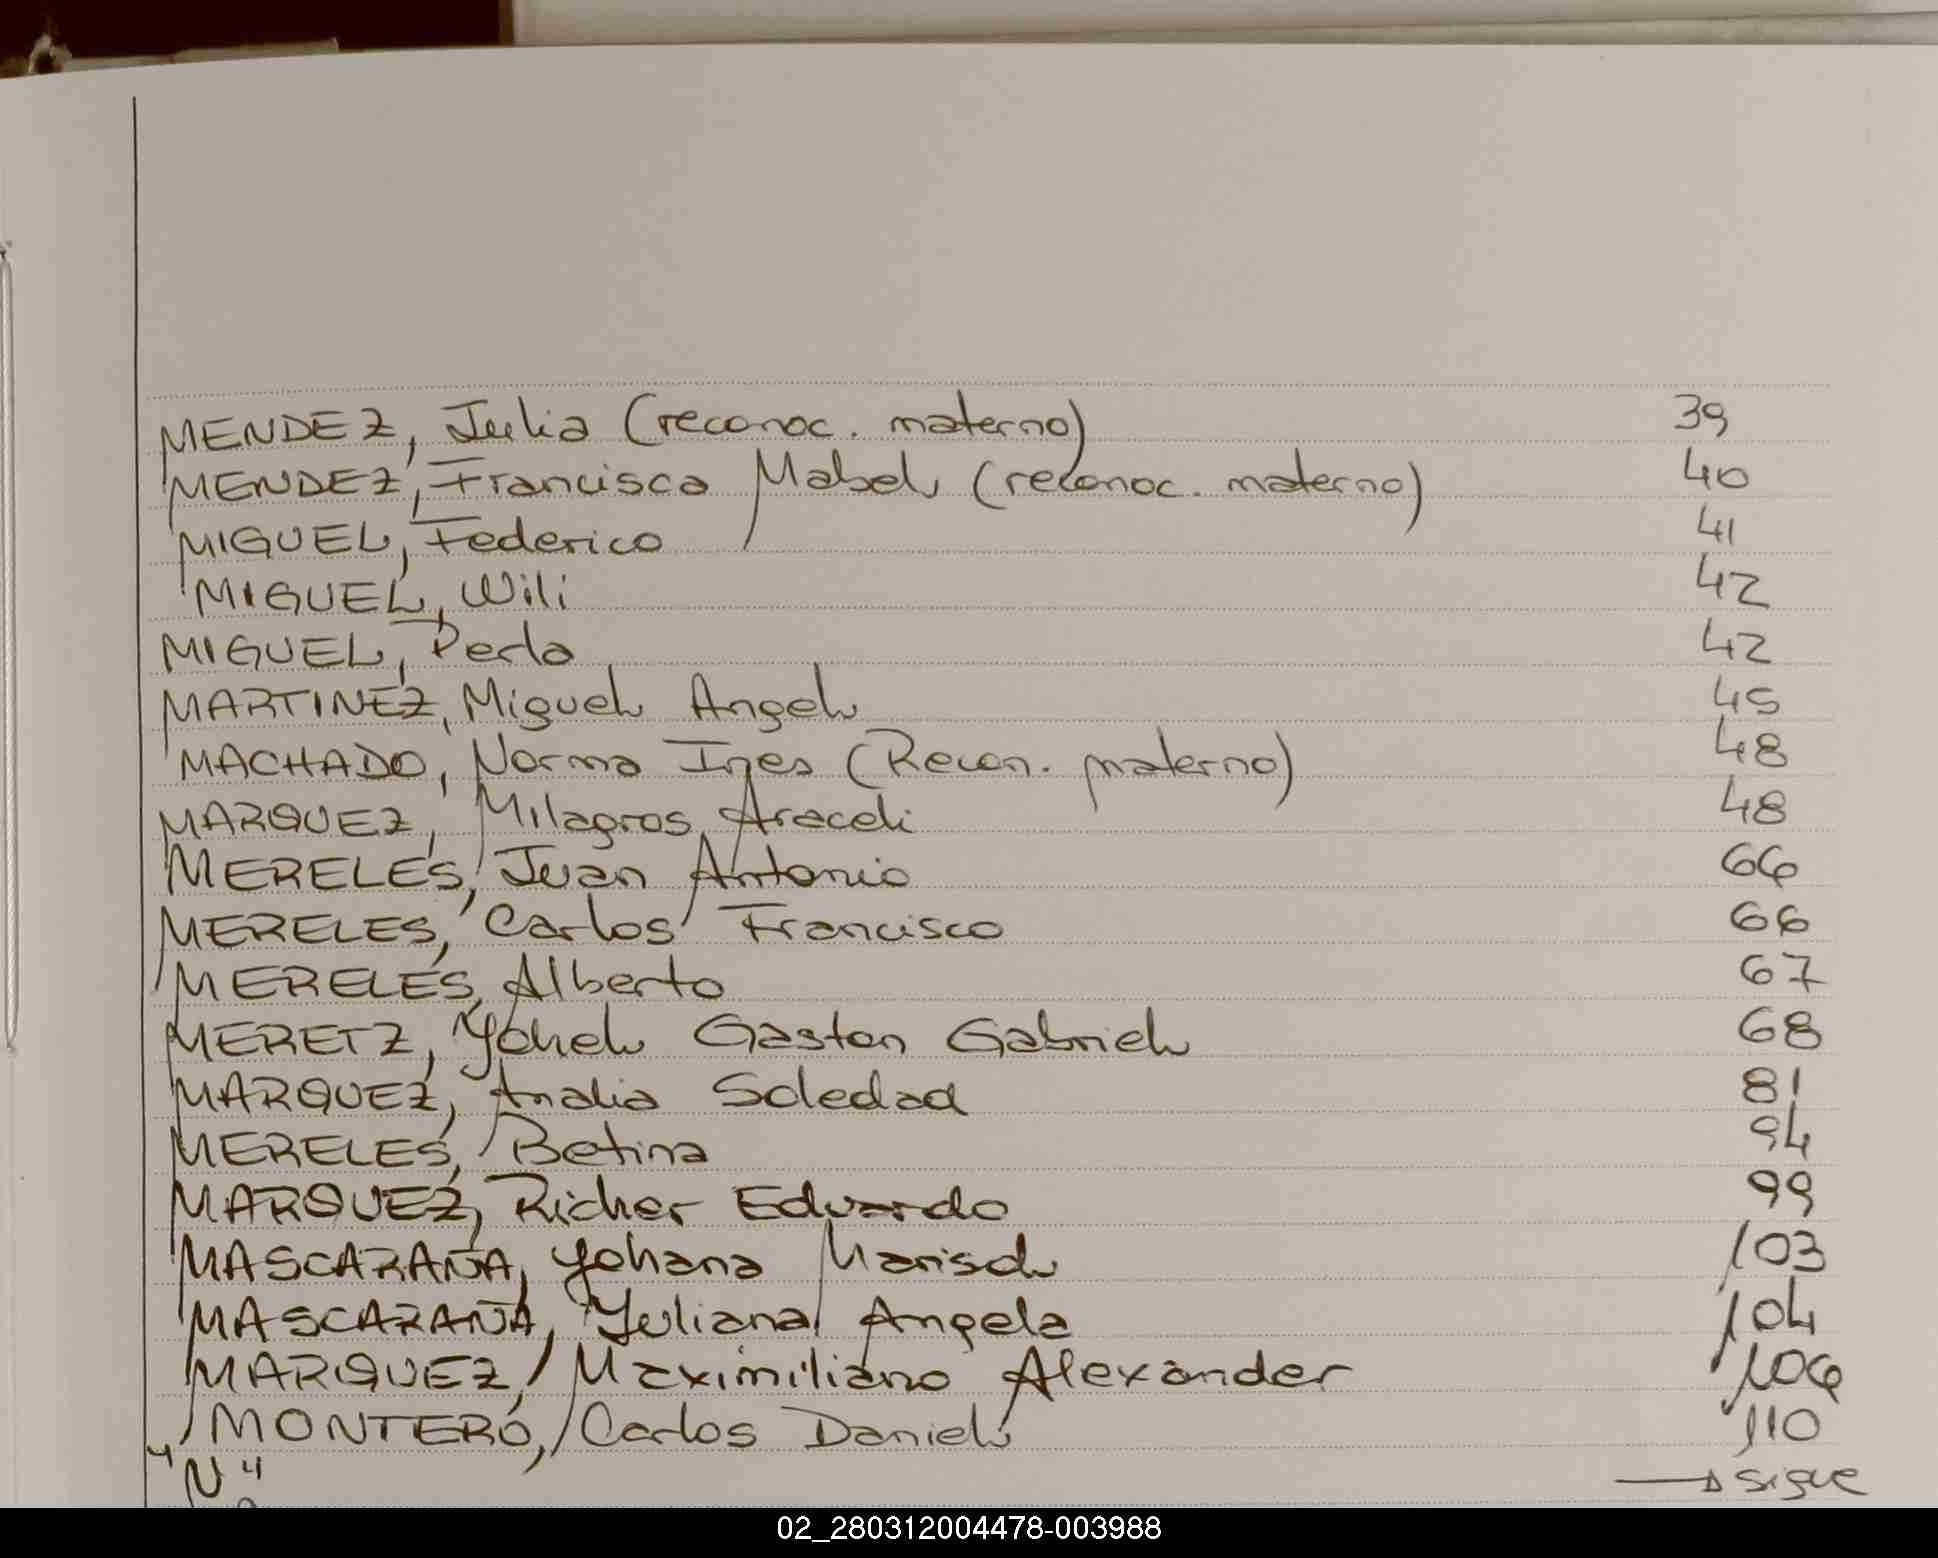 MENDEZ, Julia (reconoc. materno) 39
MENDEZ, Francisca Mabel (reconoc. materno) 40
MIGUEL, Federico 41
MIGUEL, Wili 42
MIGUEL, Perla 42
MARTINEZ, Miguel Angel 45
MACHADO, Norma Ines (Recon. materno) 48
MARQUEZ, Milagros Araceli 48
MERELES, Juan Antonio 66
MERELES, Carlos Francisco 66
MERELES, Alberto 67
MERETZ, Yohel Gaston Gabriel 68
MARQUEZ, Analia Soledad 81
MERELES, Betina 94
MARQUEZ, Richer Eduardo 99
MASCARAÑA, Yohana Marisol 103
MASCARAÑA, Yuliana Angela 104
MARQUEZ, Maximiliano Alexander 106
MONTERO, Carlos Daniel 110
"N" → sigue
02_280312004478-003988